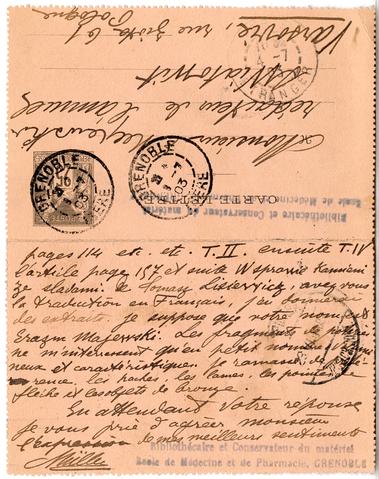 Monsieur Majewski
rédacteur de l'annuel
Swiatowit
Varsovie, rue Złota 61
Pologne
CARTE-LETTRE
GRENOBLE
ISERE
GRENOBLE
ISERE
ETRANGER
Bibliothécaire et Conservateur du matériel
École de Médecine
pages 114 etc. etc. T. II ensuite T. IV
l'article page 157 et suite W sprawie Kamieni
ze sladami de Tomasz Lisiewicz, avez vous
la traduction en Français, j'en donnerai
des extraits. je suppose que votre nom est
Erazm Majewski. Les fragments de poterie
ne m'intéressent qu'en petit nombre
et caractéristiques. je ramasse de
les haches, les lames, les pointes de
flèche et les objets de bronze.
En attendant votre réponse
je vous prie d'agréer monsieur
l'expression de mes meilleurs sentiments
Müller
Bibliothécaire et Conservateur du matériel
École de Médecine et de Pharmacie, GRENOBLE